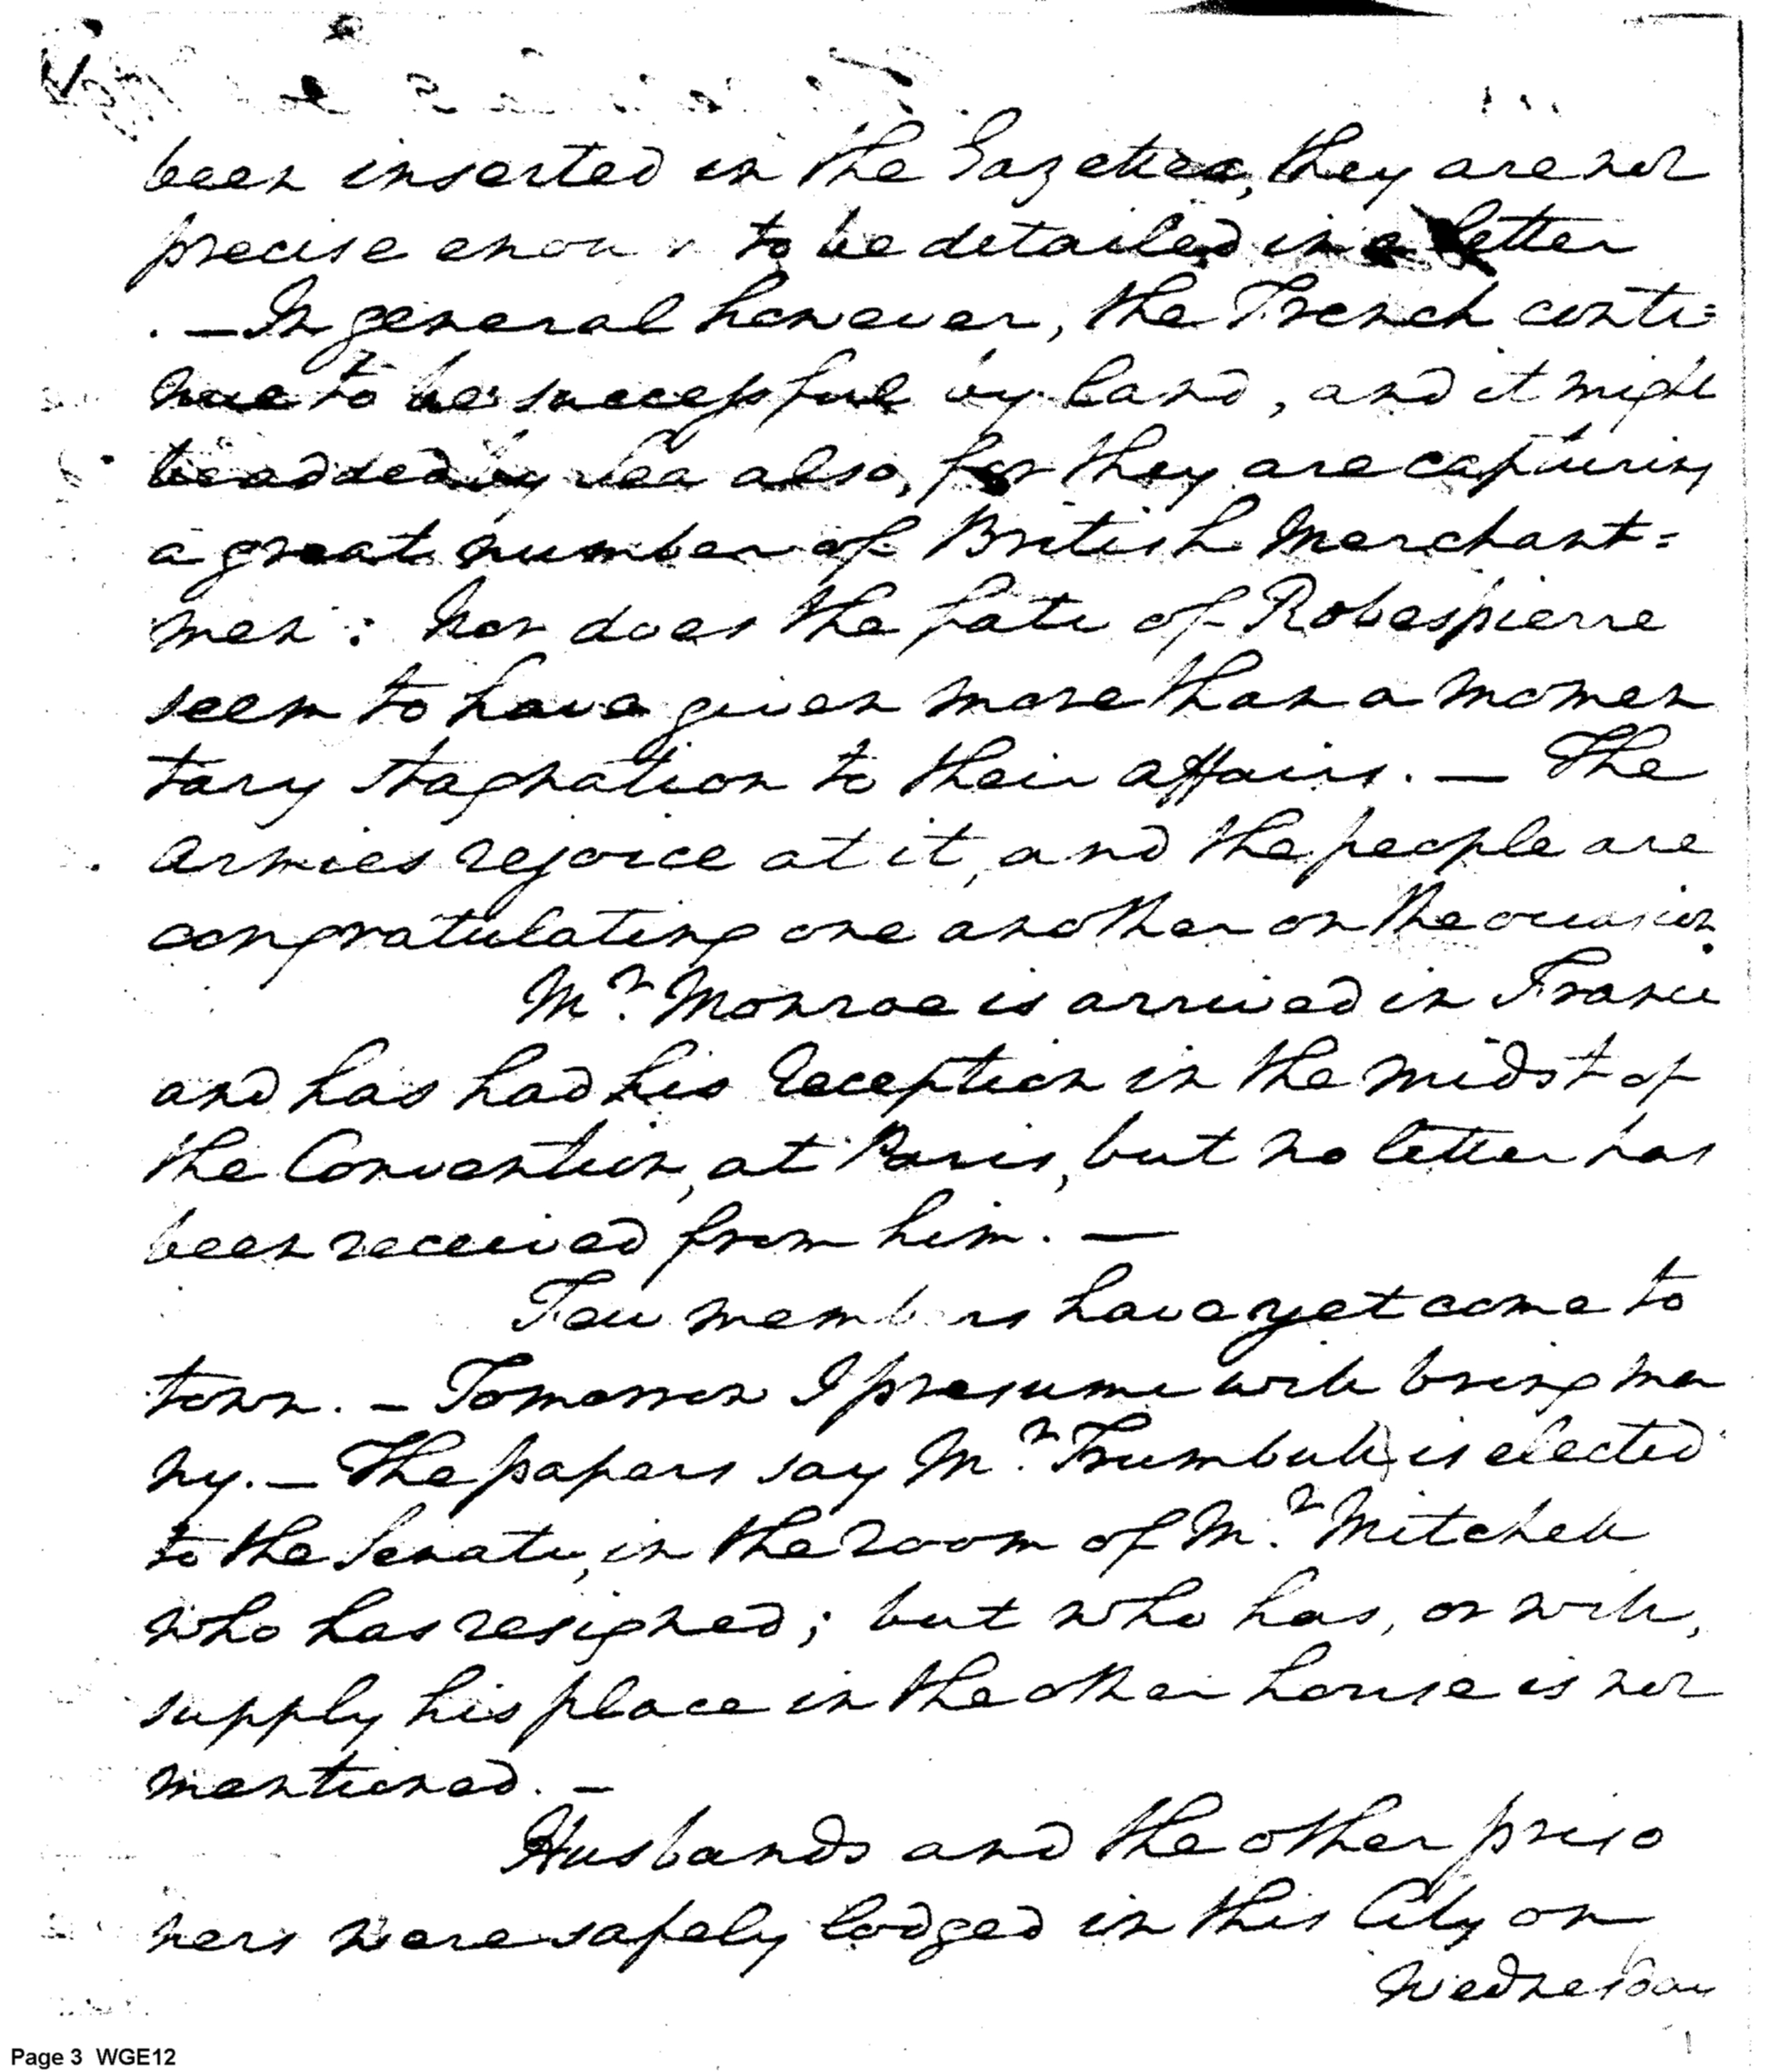 been inserted in the Gazettes, they are not
precise enough to be detailed in a letter
. — In general however, the French conti=
nue to be successful by land, and it might
be added by Sea also, for they are capturing
a great number of British Merchant=
men: nor does the fate of Robespierre
seem to have given more than a momen
tary stagnation to their affairs. — The
Armies rejoice at it, and the people are
congratulating one another on the occasion.
Mr. Monroe is arrived in France
and has had his reception in the midst of
the Convention, at Paris, but no letter has
been received from him. —
Few members have yet come to
town. — Tomorrow I presume will bring ma
ny. — The papers say Mr. Trumbull is elected
to the Senate, in the room of Mr. Mitchell
who has resigned; but who has, or will,
supply his place in the other house is not
mentioned. —
Husbands and the other priso
ners were safely lodged in this City on
Wednesday
Page 3 WGE12